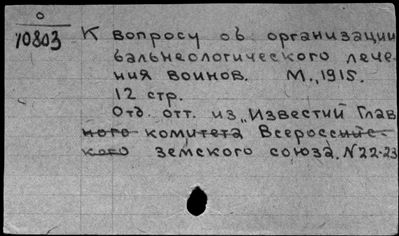 0
10803
К вопросу об организации
бальнеологического лече-
ния воинов. М., 1915.
12 стр.
Отд. отт. из „Известий Глав
ного комитета Всероссийс-
кого земского союза. N22-23